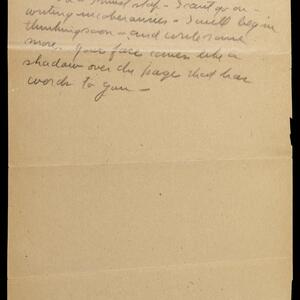 must stop - I can't go on -
writing incoherencies - I will begin
thinking soon - and write some
more. Your face comes like a
shadow over the page that has
words to you -